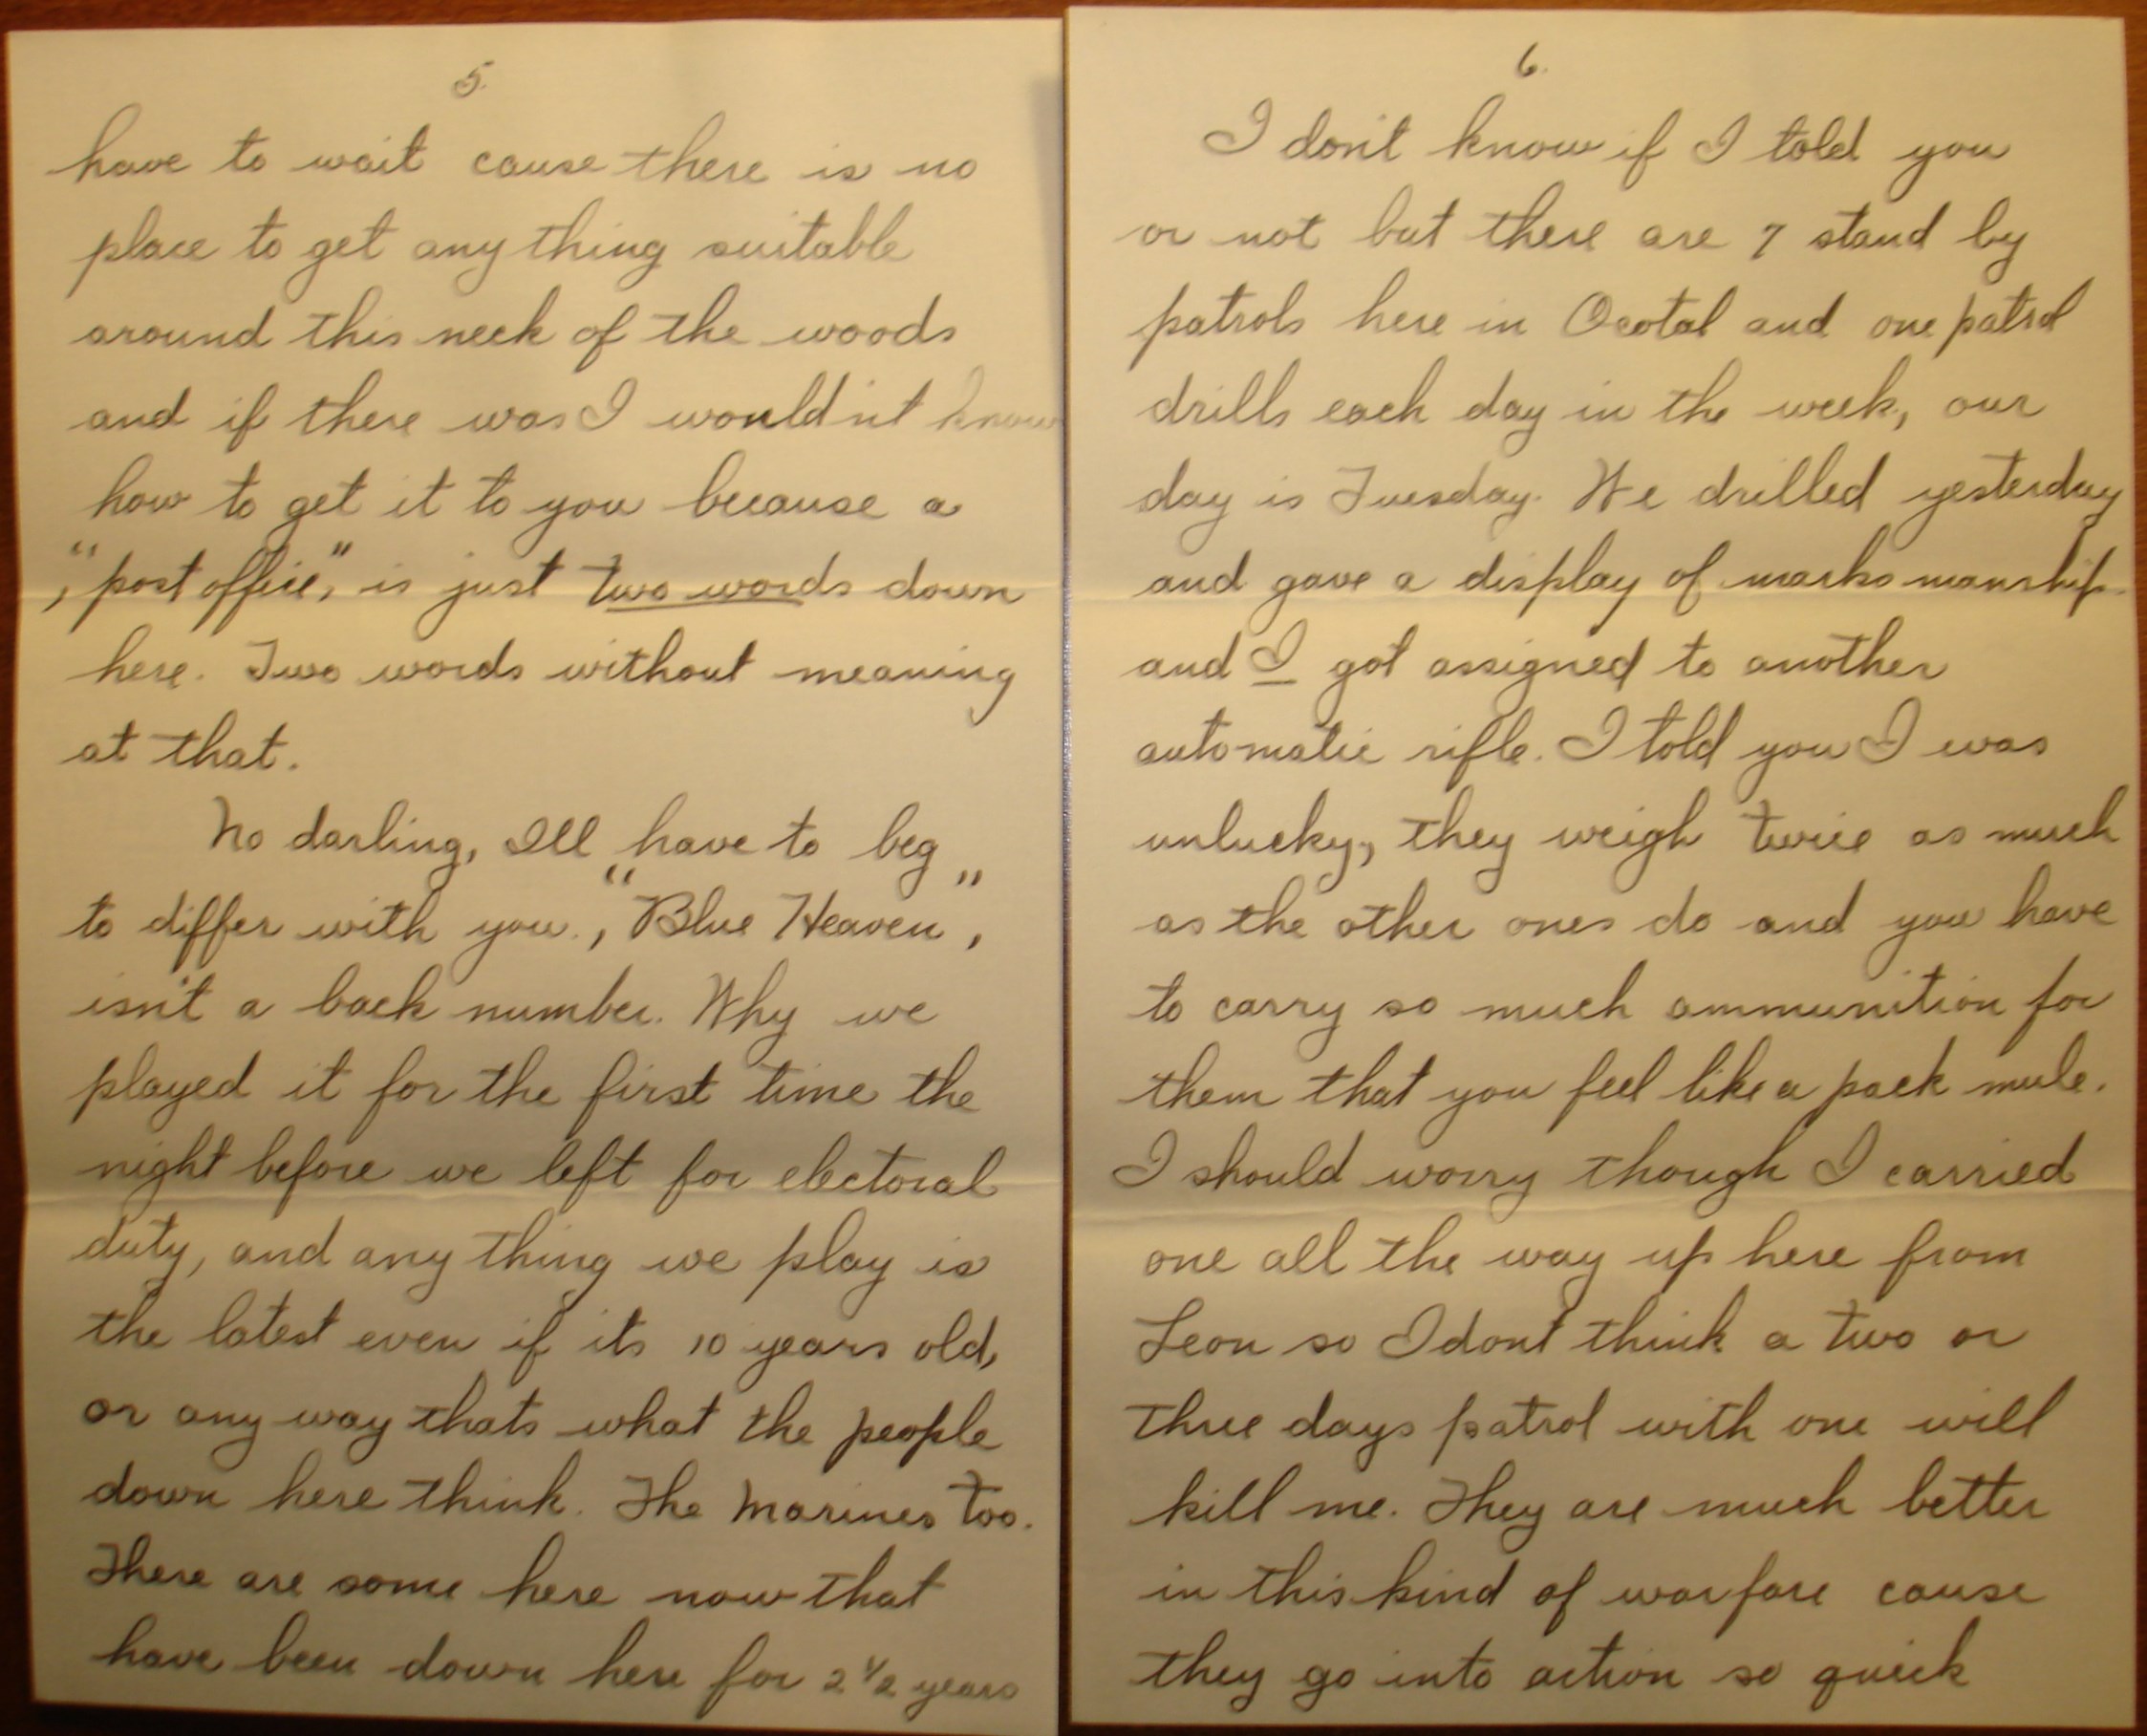 5.
have to wait cause there is no
place to get any thing suitable
around this neck of the woods
and if there was I wouldn't know
how to get it to you because a
,"post office", is just two words down
here. Two words without meaning
at that.
No darling, Ill have to beg
to differ with you., "Blue Heaven",
isn't a back number. Why we
played it for the first time the
night before we left for electoral
duty, and any thing we play is
the latest even if its 10 years old,
or any way thats what the people
down here think. The Marines too.
There are some here now that
have been down here for 2 1/2 years
6.
I don't know if I told you
or not but there are 7 stand by
patrols here in Ocotal and one patrol
drills each day in the week, our
day is Tuesday. We drilled yesterday
and gave a display of marksmanship
and I got assigned to another
automatic rifle. I told you I was
unlucky, they weigh twice as much
as the other ones do and you have
to carry so much ammunition for
them that you feel like a pack mule.
I should worry though I carried
one all the way up here from
Leon so I dont think a two or
three days patrol with one will
kill me. They are much better
in this kind of warfare cause
they go into action so quick